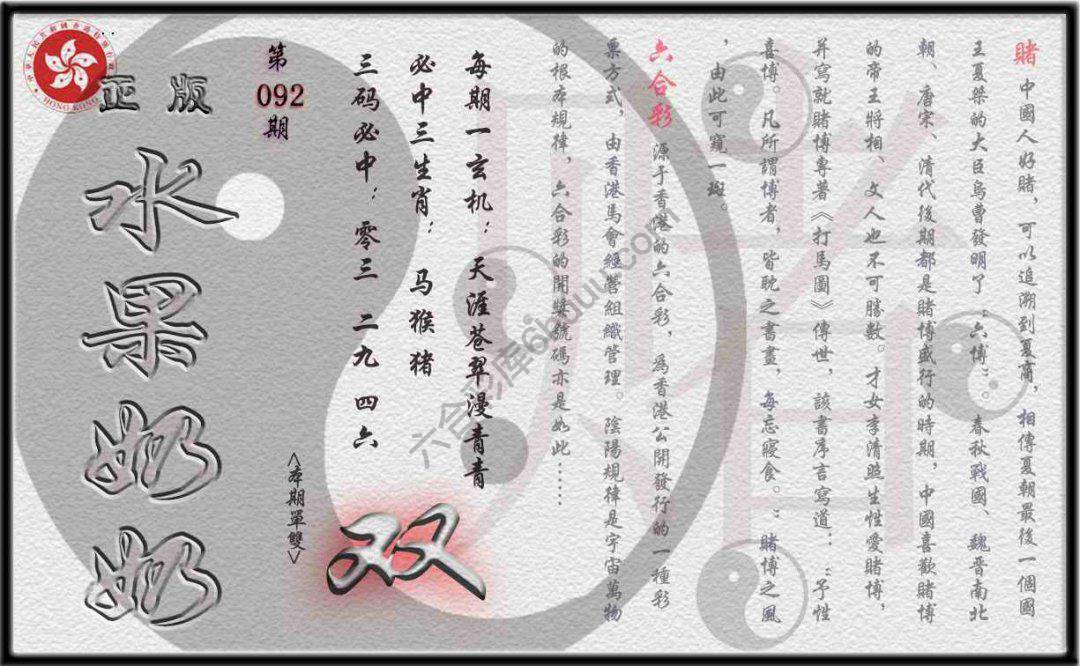 賭 中國人好賭，可以追溯到夏商，相傳夏朝最後一個國
王夏桀的大臣烏曹發明了“六博”。春秋戰國、魏晋南北
朝、唐宋、清代後期都是賭博盛行的時期，中國喜歡賭博
的帝王將相、文人也不可勝數。才女李清照生性愛賭博，
并寫就賭博專著《打馬圖》傳世，該書序言寫道：“予性
喜博。凡所謂博者，皆耽之書畫，每忘寢食。”賭博之風
，由此可窺一斑。
六合彩 源于香港的六合彩，爲香港公開發行的一種彩
票方式，由香港馬會經營組織管理。陰陽規律是宇宙萬物
的根本規律，六合彩的開獎號碼亦是如此……
每期一玄机：天涯苍翠漫青青
必中三生肖：马猴猪
三码必中：零三 二九 四六
双
<本期單雙>
第
092
期
正版
水果奶奶
HONG KONG
六合彩库6huuu.com